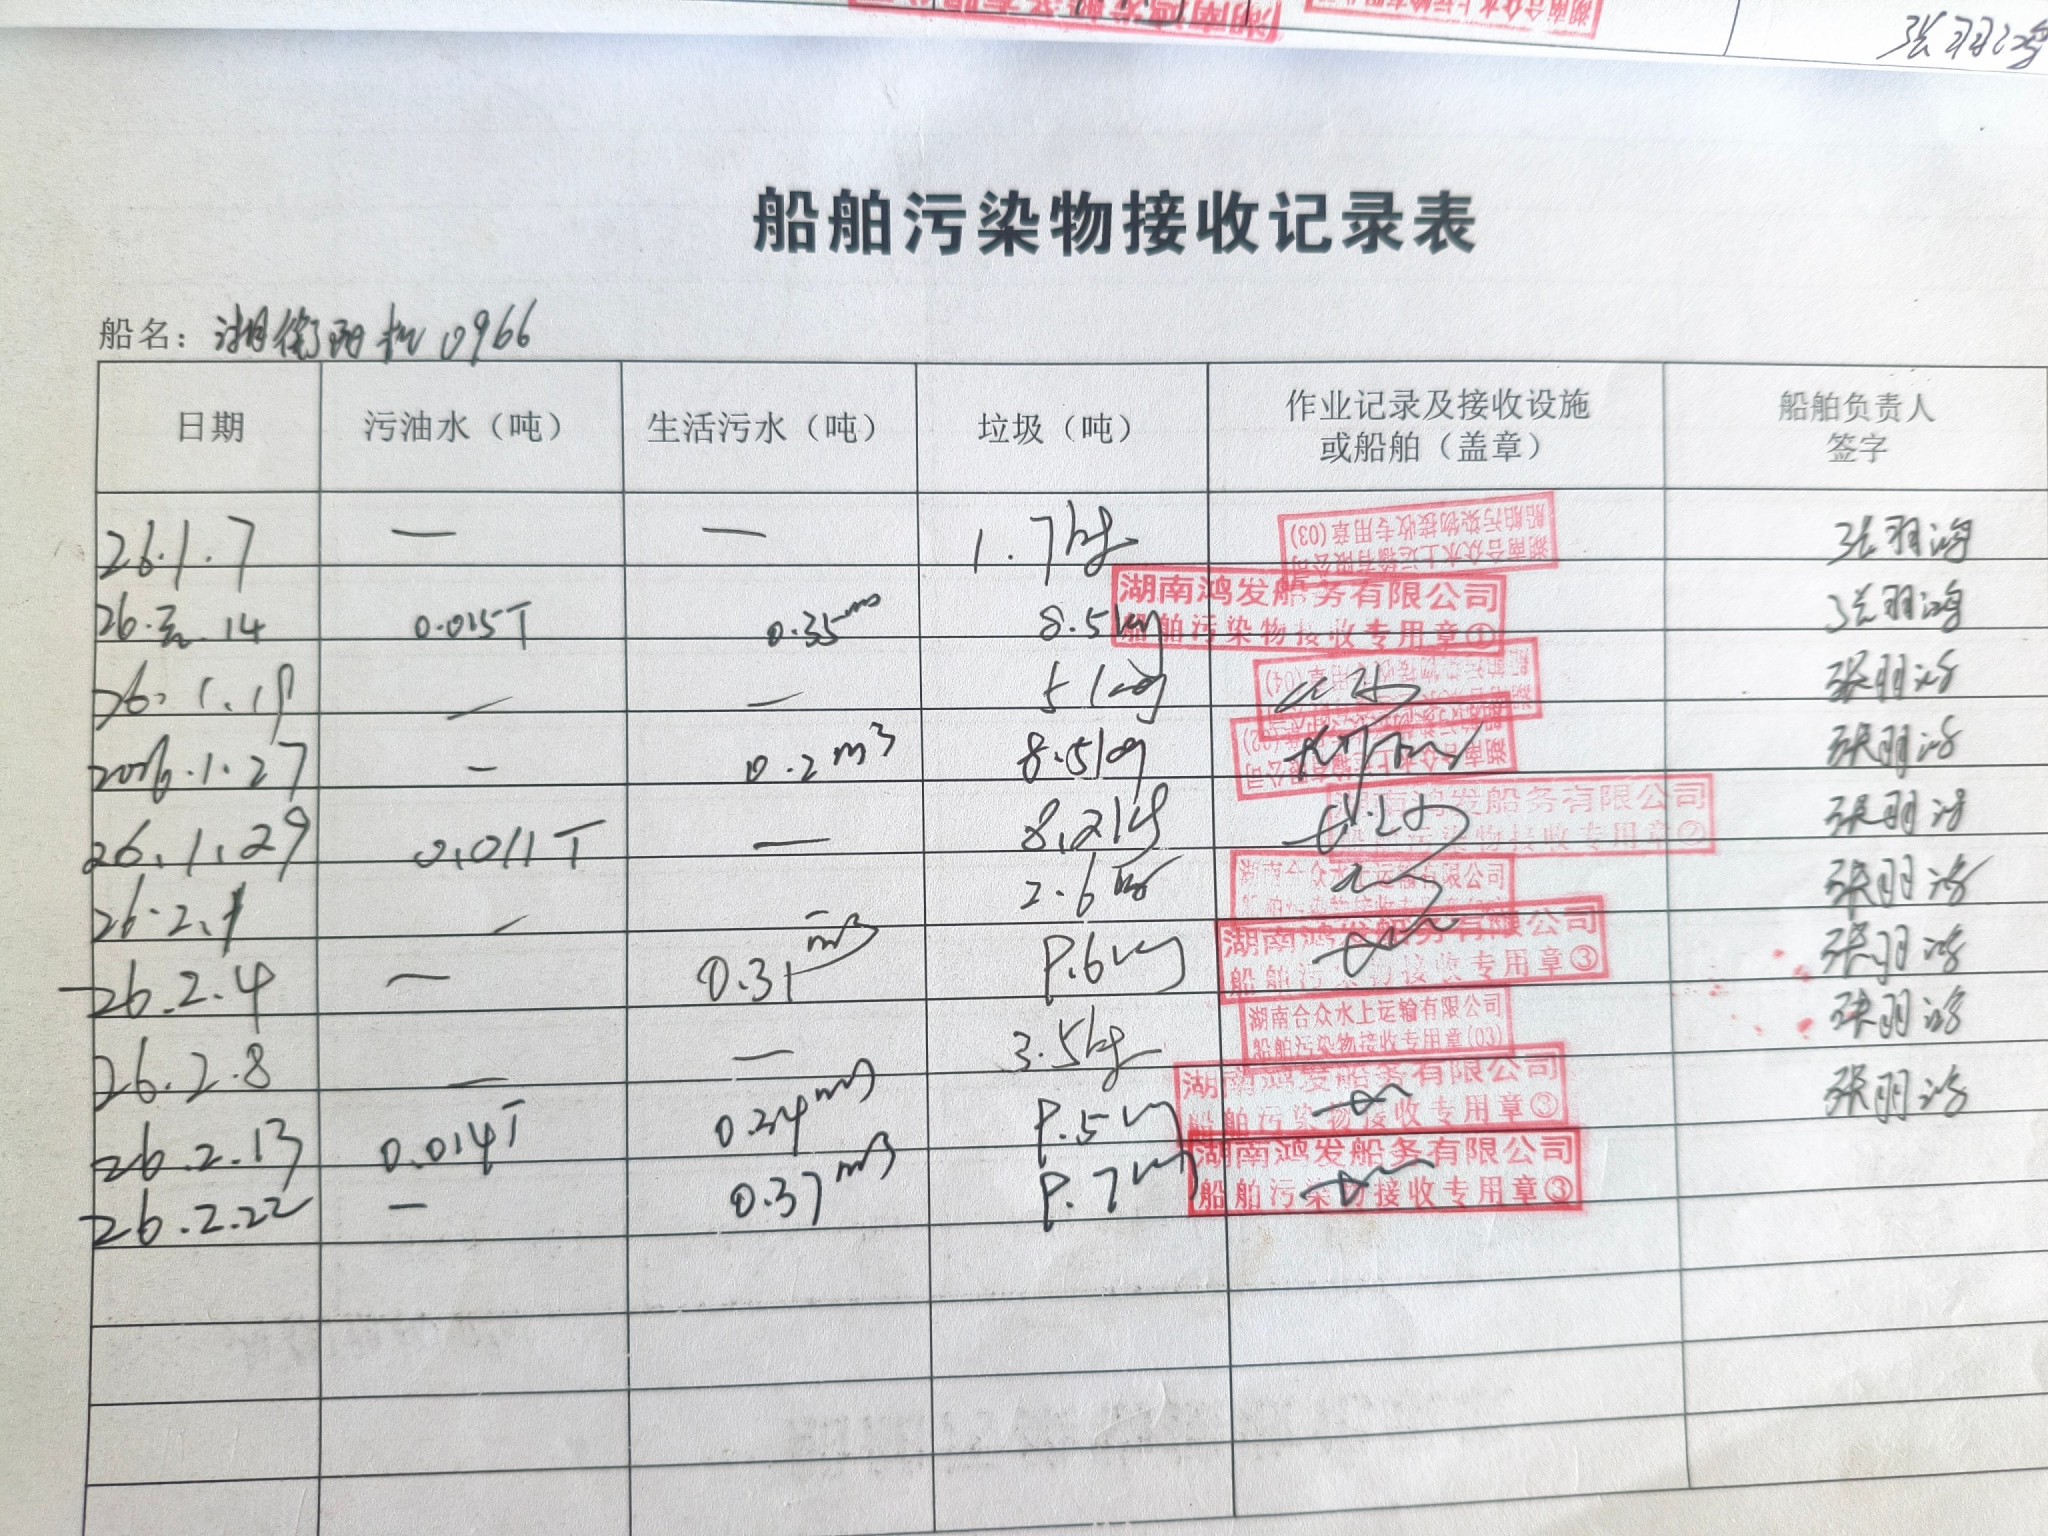 张羽鸿
船舶污染物接收记录表
船名: 湖衡阳机0966
日期 污油水（吨） 生活污水（吨） 垃圾（吨） 作业记录及接收设施或船舶（盖章） 船舶负责人签字
26.1.7 — — 1.7kg 湖南合众水上运输有限公司 船舶污染物接收专用章(03) 张羽鸿
26.元.14 0.015T 0.35m 8.5kg 湖南鸿发船务有限公司 船舶污染物接收专用章① 张羽鸿
26.1.19 — — 5kg 船舶污染物接收专用章(04) 张羽鸿
2026.1.27 — 0.2m³ 8.5kg 湖南合众水上运输有限公司 张羽鸿
26.1.29 0.011T — 8.2kg 湖南鸿发船务有限公司 船舶污染物接收专用章② 张羽鸿
26.2.1 — 2.6 湖南合众水上运输有限公司 张羽鸿
26.2.4 — 0.31m³ 8.6kg 湖南鸿发船务有限公司 船舶污染物接收专用章③ 张羽鸿
26.2.8 — — 3.5kg 湖南合众水上运输有限公司 船舶污染物接收专用章(03) 张羽鸿
26.2.13 0.014T 0.34m³ 8.5kg 湖南鸿发船务有限公司 船舶污染物接收专用章③ 张羽鸿
26.2.22 — 0.37m³ 8.7kg 湖南鸿发船务有限公司 船舶污染物接收专用章③